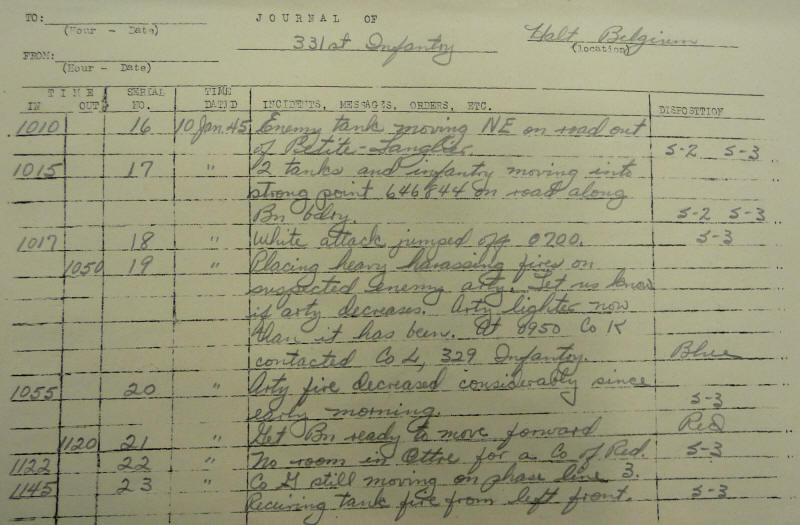 TO: JOURNAL OF
(Hour - Date) 331st Infantry Halt, Belgium
(location)
FROM:
(Hour - Date)
TIME SERIAL TIME
IN OUT NO. DATED INCIDENTS, MESSAGES, ORDERS, ETC. DISPOSITION
1010 16 10 Jan. 45 Enemy tank moving NE on road out
of Petite-Langlir. S-2 S-3
1015 17 " 2 tanks and infantry moving into
strong point 646844 on road along
Bn bdry. S-2 S-3
1017 18 " White attack jumped off 0700. S-3
1050 19 " Placing heavy harassing fires on
suspected enemy arty. Let us know
if arty decreases. Arty lighter now
than it has been. At 0950 Co K
contacted Co L, 329 Infantry. Blue
1055 20 " Arty fire decreased considerably since
early morning. S-3
1120 21 " Get Bn ready to move forward Red
1122 22 " No room in Ottre for a Co of Red. S-3
1145 23 " Co G still moving on phase line 3.
Receiving tank fire from left front. S-3